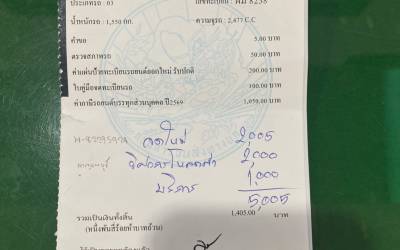 ประเภทรถ : 03 เลขทะเบียน : ผม 8258
น้ำหนักรถ : 1,550 กก. ความจุรถ : 2,477 C.C
คำขอ 5.00 บาท
ตรวจสภาพรถ 50.00 บาท
ค่าแผ่นป้ายทะเบียนรถยนต์ออกใหม่ รับปกติ 200.00 บาท
ใบคู่มือจดทะเบียน 100.00 บาท
ค่าภาษีรถยนต์บรรทุกส่วนบุคคล ปี2569 1,050.00 บาท
จดใหม่ 2,005
2,000
บริการ 1,000
5,005
รวมเป็นเงินทั้งสิ้น 1,405.00 บาท
(หนึ่งพันสี่ร้อยห้าบาทถ้วน)